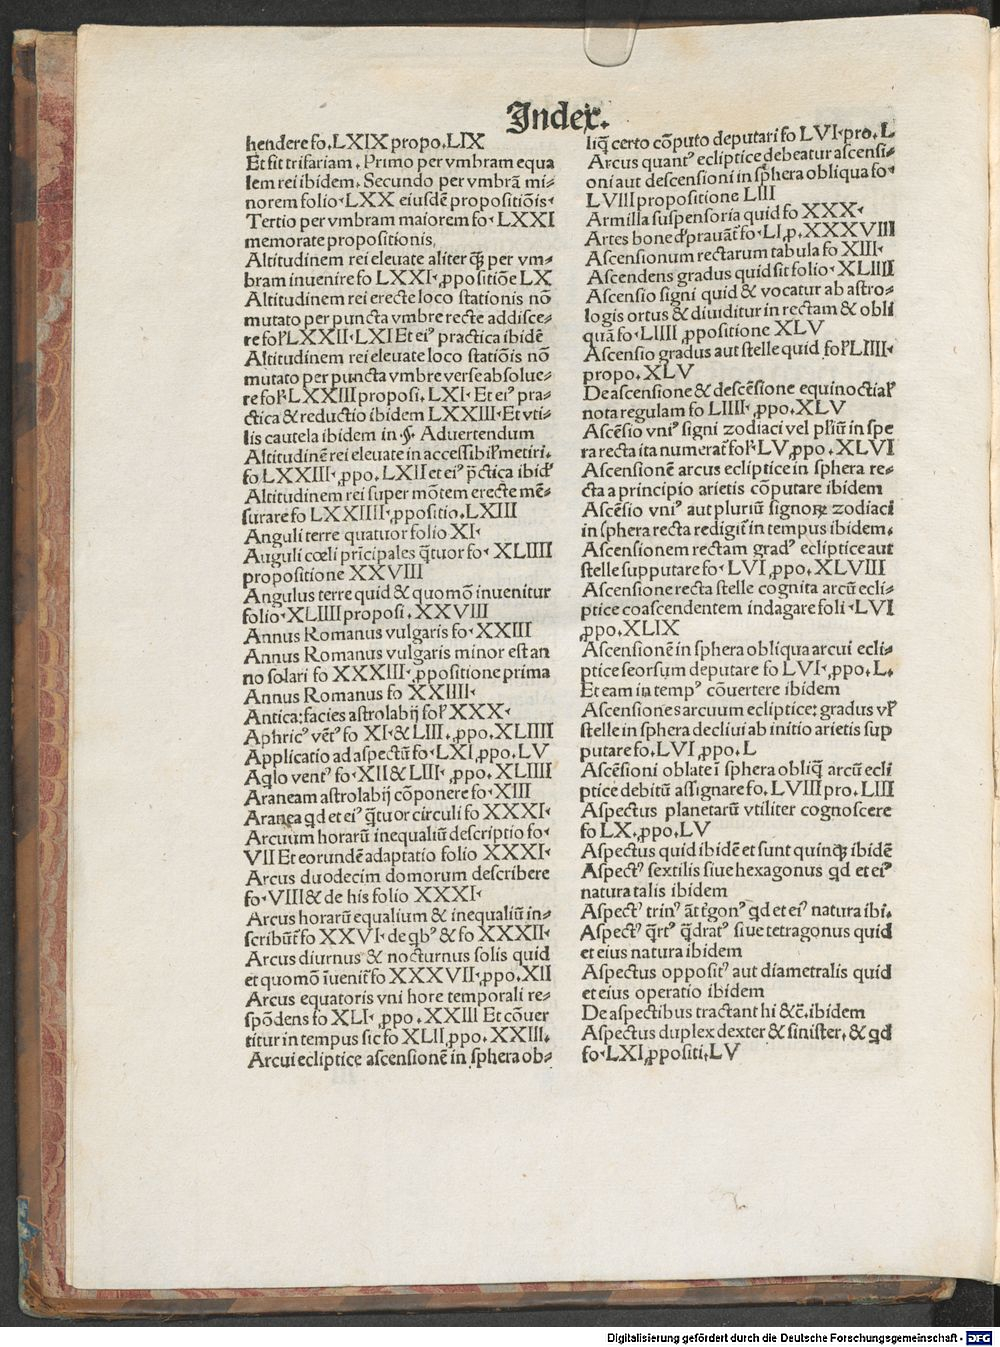 Index.
hendere fo.LXIX propo.LIX
Et fit trifariam. Primo per vmbram equa
lem rei ibidem. Secundo per vmbrā mi⸗
norem folio·LXX eiusdē propositiōis·
Tertio per vmbram maiorem fo·LXXI
memorate propositionis.
Altitudinem rei eleuate aliter q̄ꝫ per vm⸗
bram inuenire fo LXXI·ꝓpositiōe LX
Altitudinem rei erecte loco stationis nō
mutato per puncta vmbre recte addisce⸗
re fol̕ LXXII·LXI Et eiꝰ practica ibidē
Altitudinem rei eleuate loco statiōis nō
mutato per puncta vmbre verse absolue⸗
re fol̕·LXXIII proposi.LXI·Et eiꝰ pra⸗
ctica & reductio ibidem LXXIII·Et vti⸗
lis cautela ibidem in .§. Aduertendum
Altitudinē rei eleuate in accessibil̕ metiri.
fo LXXIII·ꝓpo.LXII et eiꝰ p̄ctica ibid̕
Altitudinem rei super mōtem erecte mē⸗
surare fo LXXIIII·ꝓpositio.LXIII
Anguli terre quatuor folio XI·
Auguli cœli prīcipales q̄tuor fo· XLIIII
propositione XXVIII
Angulus terre quid & quomō inuenitur
folio·XLIIII proposi.XXVIII
Annus Romanus vulgaris fo·XXIII
Annus Romanus vulgaris minor est an
no solari fo XXXIII·ꝓpositione prima
Annus Romanus fo XXIIII·
Antica: facies astrolabij fol̕ XXX·
Aphricꝰ vēt̕ꝰ fo XI·& LIII.ꝓpo.XLIIII
Applicatio ad aspectū fo·LXI ꝓpo.LV
Aq̄lo ventꝰ fo·XII & LIII·ꝓpo.XLIIII
Araneam astrolabij cōponere fo·XIII
Aranea qd et eiꝰ q̄tuor circuli fo XXXI·
Arcuum horarū inequaliū descriptio fo·
VII Et eorundē adaptatio folio XXXI·
Arcus duodecim domorum describere
fo·VIII & de his folio XXXI·
Arcus horarū equalium & inequaliū in⸗
scribūt̕ fo XXVI·de qbꝰ & fo XXXII·
Arcus diurnus & nocturnus solis quid
et quomō īuenit̕ fo XXXVII·ꝓpo.XII
Arcus equatoris vni hore temporali re⸗
spōdens fo XLI·ꝓpo.XXIII Et cōuer
titur in tempus sic fo XLII ꝓpo.XXIII.
Arcui ecliptice ascensionē in sphera ob⸗
liq̄ certo cōputo deputari fo LVI·pro.L
Arcus quantꝰ ecliptice debeatur ascensi⸗
oni aut descensioni in sp̄hera obliqua fo·
LVIII propositione LIII
Armilla suspensoria quid fo XXX·
Artes bone dꝑrauāt̕ fo·LI ꝓ.XXXVIII
Ascensionum rectarum tabula fo XIII·
Ascendens gradus quid sit folio·XLIIII
Ascensio signi quid & vocatur ab astro⸗
logis ortus & diuiditur in rectam & obli
quā fo·LIIII ꝓpositione XLV
Ascensio gradus aut stelle quid fol̕ LIIII·
propo.XLV
De ascensione & descēsione equinoctial̕
nota regulam fo LIIII·ꝓpo.XLV
Ascēsio vniꝰ signi zodiaci vel pl̕iū in spe
ra recta ita numerat̕ fol̕·LV ꝓpo.XLVI
Ascensionē arcus ecliptice in sphera re⸗
cta a principio arietis cōputare ibidem
Ascēsio vniꝰ aut pluriū signoꝝ zodiaci
in sphera recta redigit̕ in tempus ibidem.
Ascensionem rectam gradꝰ ecliptice aut
stelle supputare fo·LVI ꝓpo.XLVIII
Ascensione recta stelle cognita arcū ecli⸗
ptice coascendentem indagare foli·LVI
ꝓpo.XLIX
Ascensionē in sphera obliqua arcui ecli⸗
ptice seorsum deputare fo LVI·ꝓpo.L.
Et eam in tempꝰ cōuertere ibidem
Ascensiones arcuum ecliptice: gradus vl̕
stelle in sphera decliui ab initio arietis sup
putare fo.LVI ꝓpo.L
Ascēsioni oblate i sphera obliq̄ arcū ecli
ptice debitū assignare fo.LVIII pro.LIII
Aspectus planetarū vtiliter cognoscere
fo LX.ꝓpo.LV
Aspectus quid ibidē et sunt quinqꝫ ibidē
Aspectꝰ sextilis siue hexagonus qd et eiꝰ
natura talis ibidem
Aspectꝰ trinꝰ āt t̕gonꝰ qd et eiꝰ natura ibi.
Aspectꝰ q̄rtꝰ q̄dratꝰ siue tetragonus quid
et eius natura ibidem
Aspectus oppositꝰ aut diametralis quid
et eius operatio ibidem
De aspectibus tractant hi &c̄.ibidem
Aspectus duplex dexter & sinister. & qd
fo·LXI ꝓpositi.LV
Digitalisierung gefördert durch die Deutsche Forschungsgemeinschaft - DFG